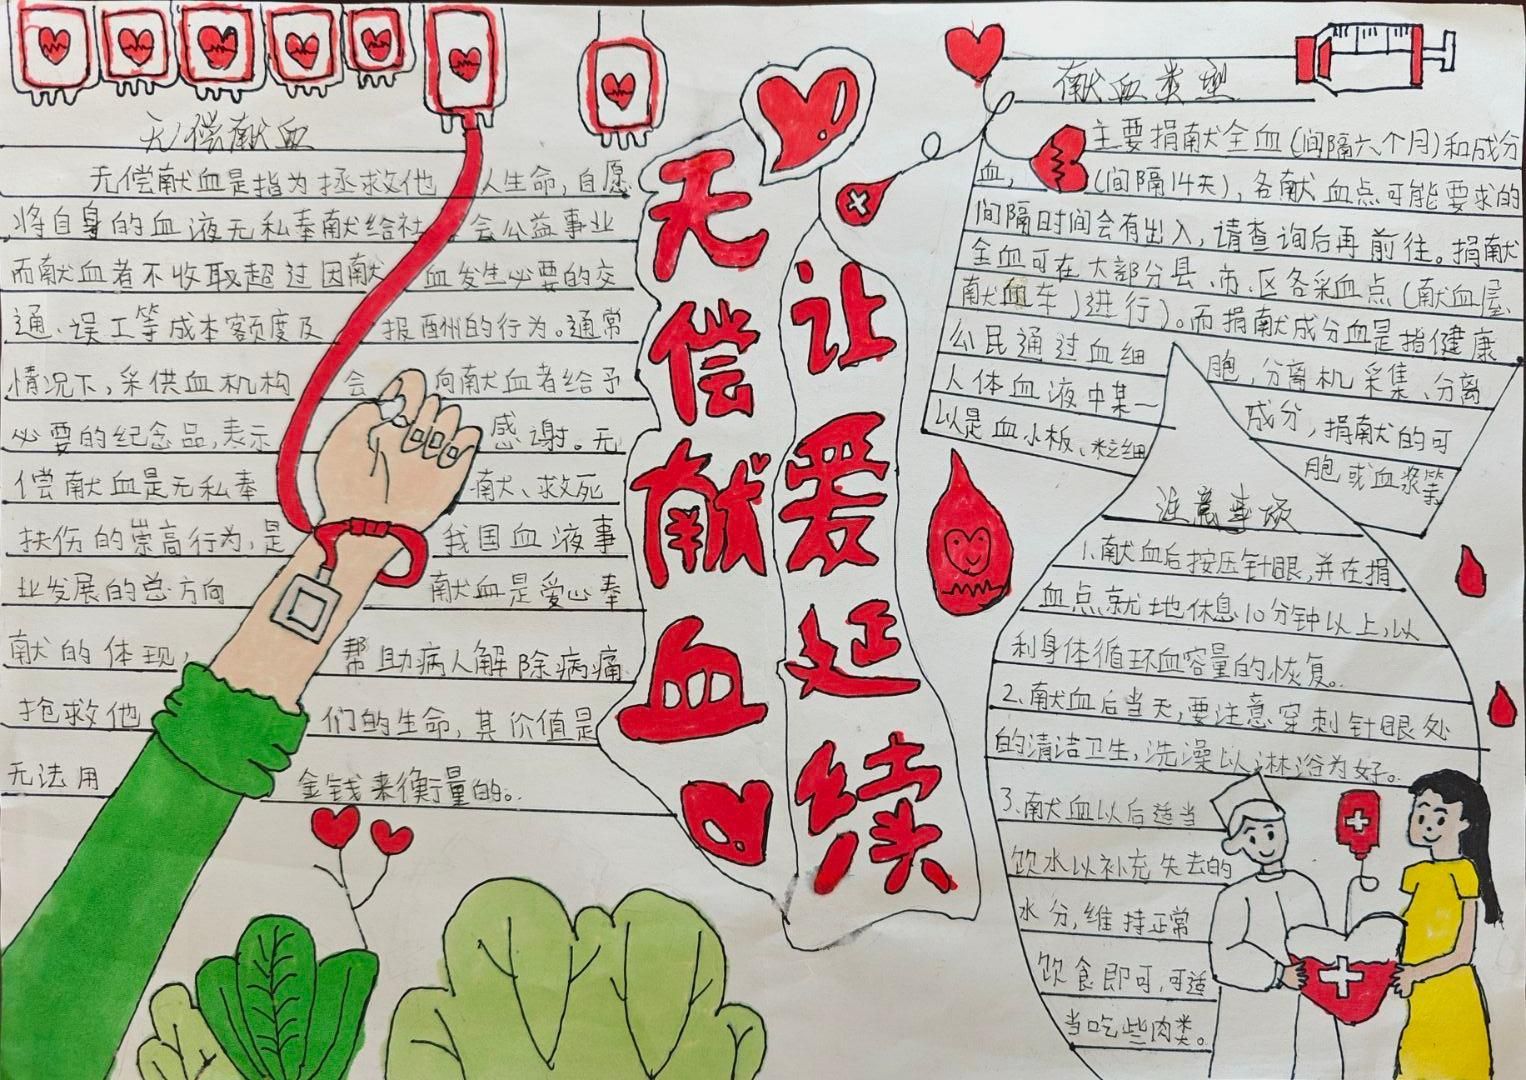 无偿献血
无偿献血是指为拯救他人生命,自愿
将自身的血液无私奉献给社会公益事业
而献血者不收取超过因献血发生必要的交
通、误工等成本额度及报酬的行为。通常
情况下,采供血机构会向献血者给予
必要的纪念品,表示感谢。无
偿献血是无私奉献、救死
扶伤的崇高行为,是我国血液事
业发展的总方向献血是爱心奉
献的体现,帮助病人解除病痛
抢救他们的生命,其价值是
无法用金钱来衡量的。
无偿献血
让爱延续
献血类型
主要捐献全血(间隔六个月)和成分
血,(间隔14天),各献血点可能要求的
间隔时间会有出入,请查询后再前往。捐献
全血可在大部分县、市、区各采血点(献血屋、
献血车)进行)。而捐献成分血是指健康
公民通过血细胞,分离机采集、分离
人体血液中某一成分,捐献的可
以是血小板、粒细胞或血浆等
注意事项
1.献血后按压针眼,并在捐
血点就地休息10分钟以上,以
利身体循环血容量的恢复。
2.献血后当天,要注意穿刺针眼处
的清洁卫生,洗澡以淋浴为好。
3.献血以后适当
饮水以补充失去的
水分,维持正常
饮食即可,可适
当吃些肉类。